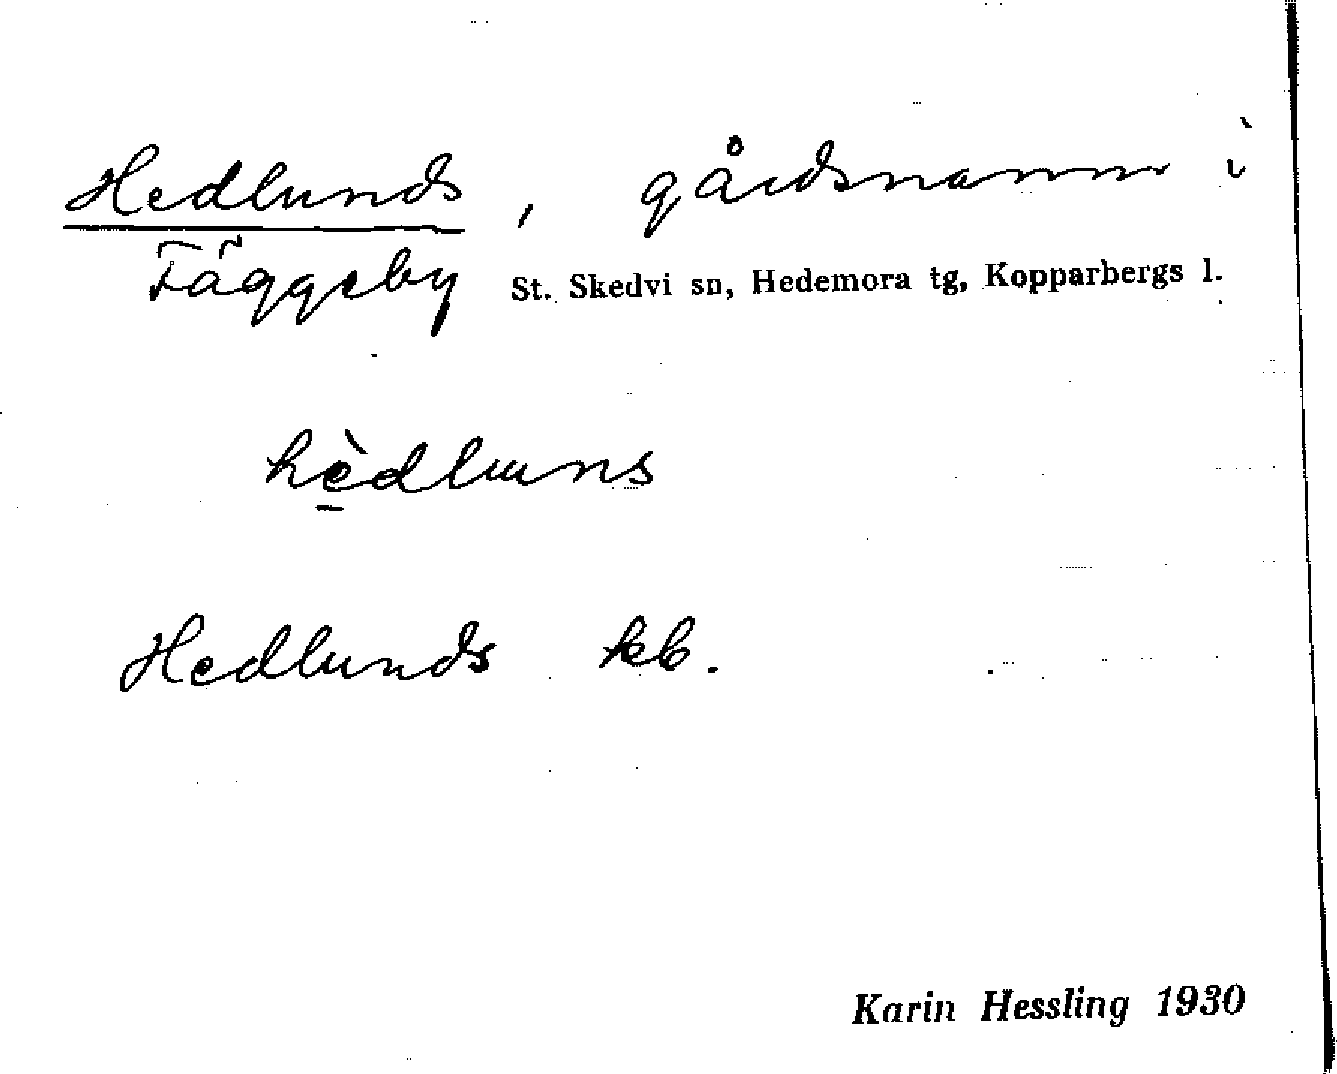 Hedlunds, gårdsnamn i
Fäggeby St. Skedvi sn, Hedemora tg, Kopparbergs l.
hèdluns
Hedlunds kb.
Karin Hessling 1930